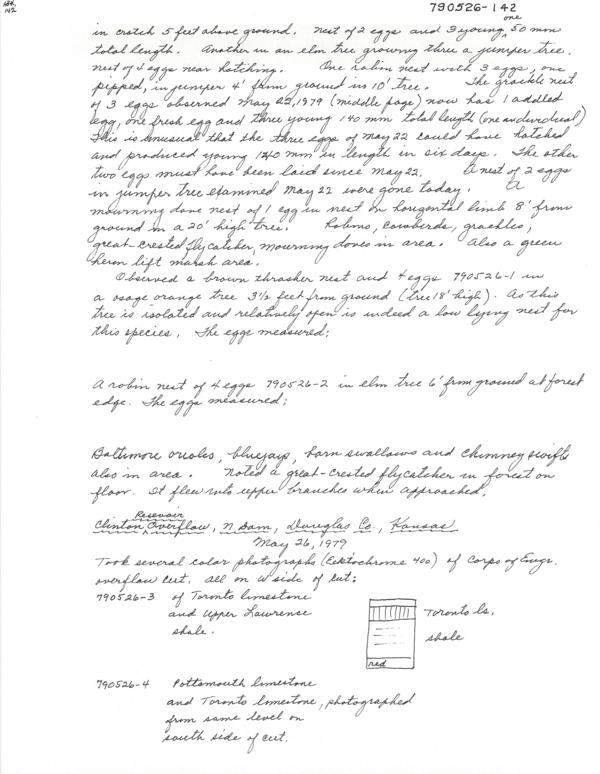 790526-142
142
in crotch 5 feet above ground. Nest of 2 eggs and 3 young, one 50 mm
total length. Another in an elm tree growing thru a juniper tree.
nest of 4 eggs near hatching. One robin nest with 3 eggs, one
pipped, in juniper 4' from ground in 10' tree. The grackle nest
of 3 eggs observed May 22, 1979 (middle page) now has 1 addled
egg, one fresh egg and three young 140 mm total length (one
This is unusual that the three eggs of May 22 could have hatched
and produced young 140 mm in length in six days. The other
two eggs must have been laid since May 22. A nest of 2 eggs
in juniper tree examined May 22 were gone today. A
mourning dove nest of 1 egg in nest on horizontal limb 8' from
ground in a 20' high tree. Robins, cowbirds, grackles,
great-crested flycatcher, mourning doves in area. Also a green
heron lift marsh area.
Observed a brown thrasher nest and 4 eggs 790526-1 in
a osage orange tree 3 1/2 feet from ground (tree 18' high). As this
tree is isolated and relatively open is indeed a low lying nest for
this species. The eggs measured:
A robin nest of 4 eggs 790526-2 in elm tree 6' from ground at forest
edge. The eggs measured:
Baltimore orioles, bluejays, barn swallows and chimney swifts
also in area. Noted a great-crested flycatcher in forest on
floor. It flew into upper branches when approached.
Clinton Reservoir Overflow, N Dam, Douglas Co., Kansas
May 26, 1979
Took several color photographs (Ecktochrome 400) of Corps of Engr.
overflow cut. All on W side of cut:
790526-3 of Toronto limestone
and upper Lawrence
shale.
Toronto ls.
shale
red
790526-4 Pottsmouth limestone
and Toronto limestone, photographed
from same level on
south side of cut.